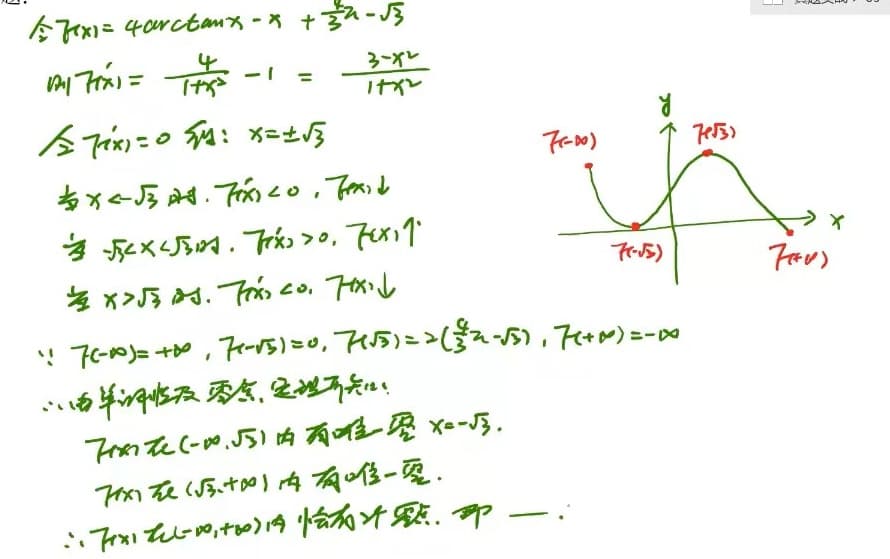 令F(x)=4arctanx-x+4/3π-√3
则F'(x)=4/(1+x²)-1=(3-x²)/(1+x²)
令F'(x)=0得:x=±√3
当x<-√3时.F'(x)<0,F(x)↓
当-√3<x<√3时.F'(x)>0,F(x)↑
当x>√3时.F'(x)<0,F(x)↓
y
F(-∞)
F(√3)
x
F(-√3)
F(+∞)
∵F(-∞)=+∞,F(-√3)=0,F(√3)=2(4/3π-√3),F(+∞)=-∞
∴由单调性及零点定理可知:
F(x)在(-∞,√3)内有唯一零 x=-√3.
F(x)在(√3,+∞)内有唯一零.
∴F(x)在(-∞,+∞)内恰有2个零点.即 — .